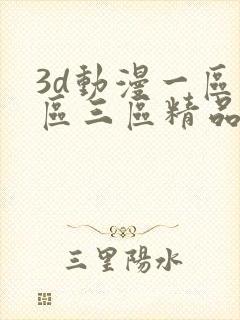 3d動漫一區
區三區精品
三里陽水